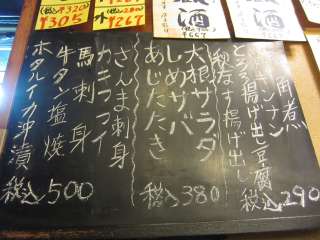 角煮
ギンナン
とろろ揚げ出し豆腐
秋なす揚げ出し
税込290
大根サラダ
しめサバ
あじたたき
税込380
さんま刺身
カキフライ
馬刺
牛タン塩焼
ホタルイカ沖漬
税込500
(税込¥320)
¥305
¥267
酒
¥667